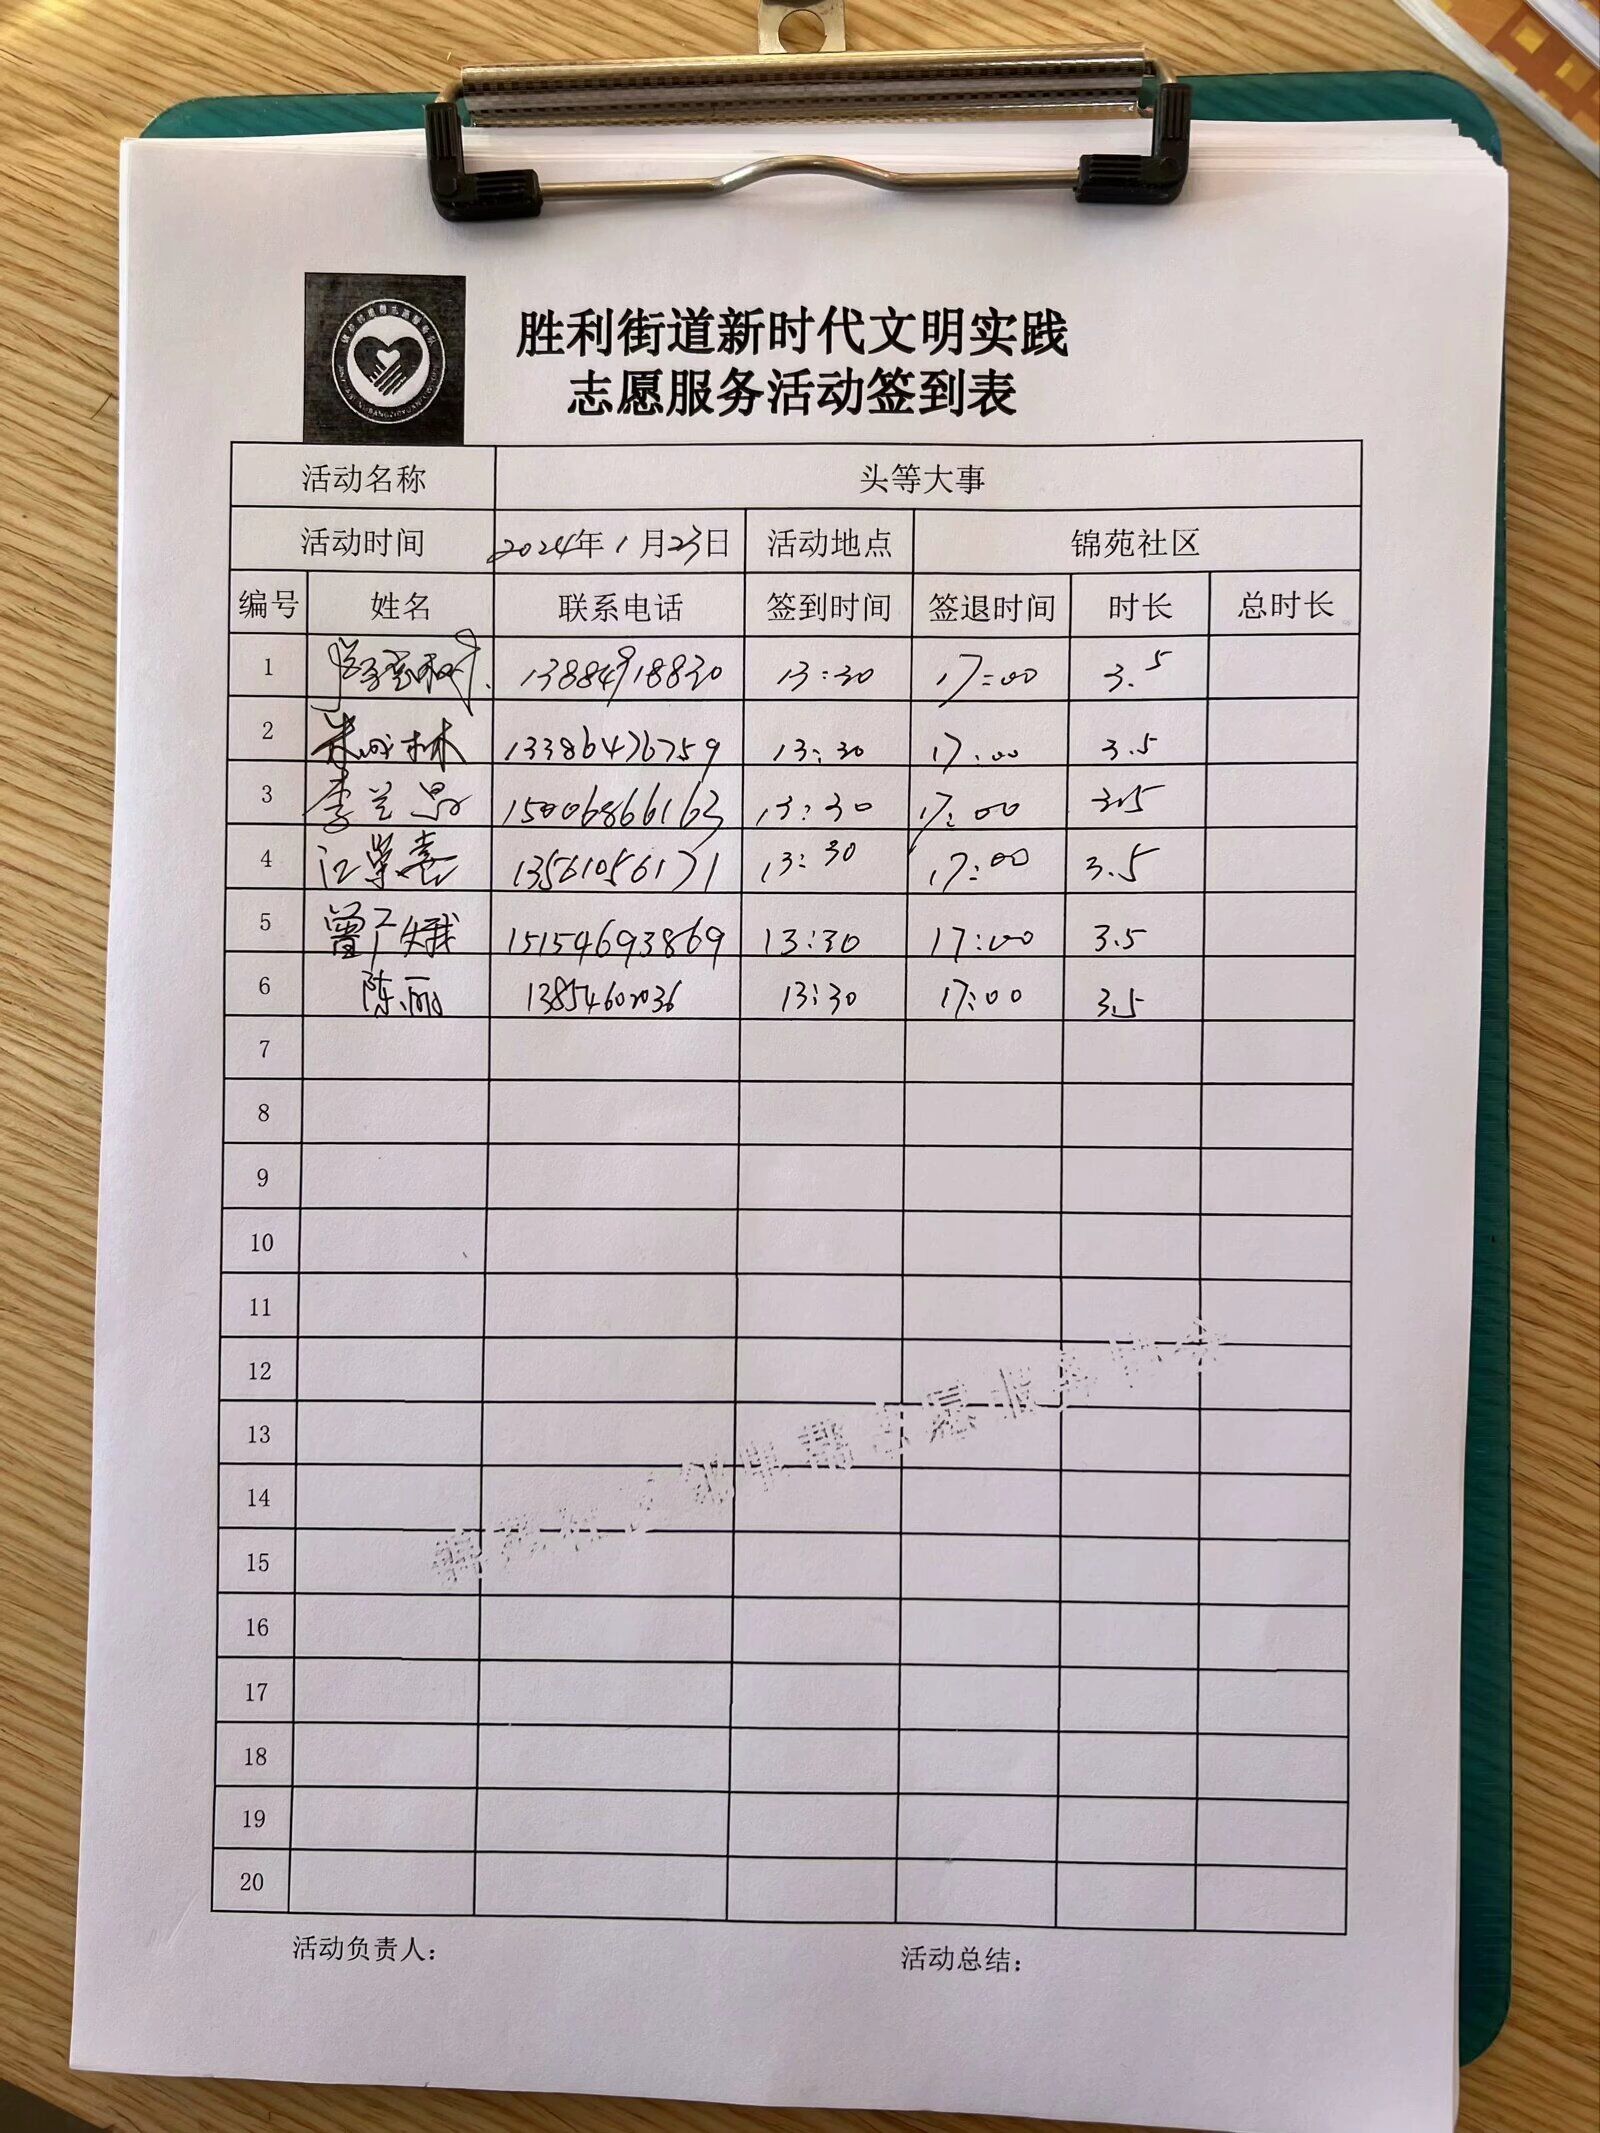 胜利街道新时代文明实践
志愿服务活动签到表
活动名称 头等大事
活动时间 2024年1月23日 活动地点 锦苑社区
编号 姓名 联系电话 签到时间 签退时间 时长 总时长
1 13884918830 13:30 17:00 3.5
2 朱城林 13386476759 13:30 17:00 3.5
3 李兰 15006866163 13:30 17:00 3.5
4 江荣喜 13561056171 13:30 17:00 3.5
5 曾广娥 15154693869 13:30 17:00 3.5
6 陈丽 1385460036 13:30 17:00 3.5
7
8
9
10
11
12
13
14
15
16
17
18
19
20
活动负责人： 活动总结：